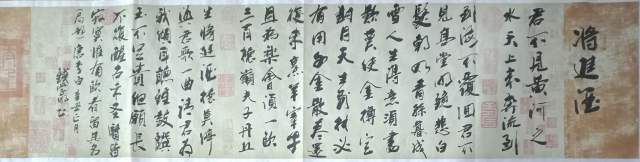 將進酒
君不見黃河之
水天上来奔流
到海不復回君不
見高堂明鏡悲白
髮朝如青絲暮成
雪人生得意須盡
歡莫使金樽空
對月天生我材必
有用千金散盡還
復来烹羊宰牛
且為樂會須一飲
三百杯岑夫子丹丘
生將進酒杯莫停
與君歌一曲請君為
我傾耳聽鐘鼓饌
玉不足貴但願長
不復醒古来聖賢皆
寂寞惟有飲者留其名